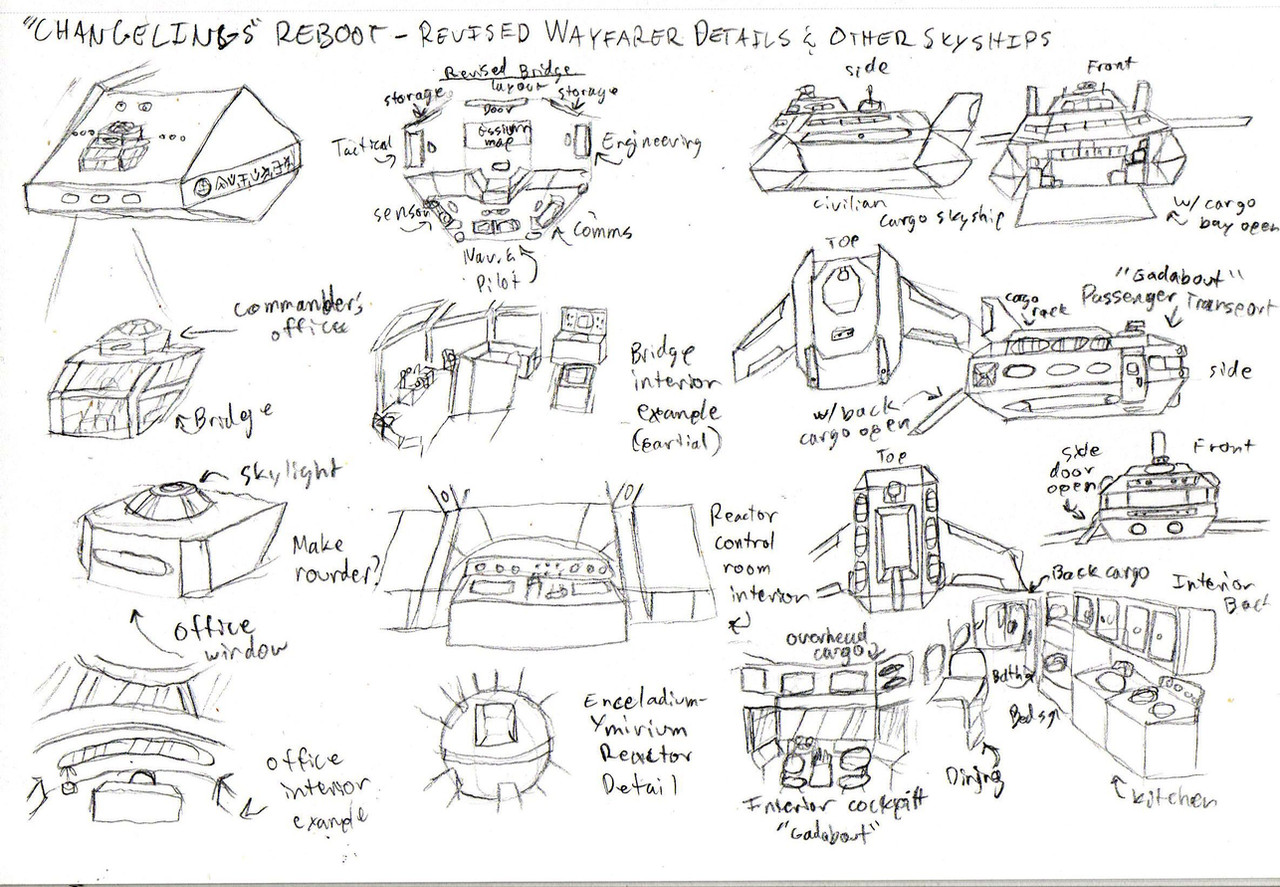 "CHANGELINGS" REBOOT - REVISED WAYFARER DETAILS & OTHER SKYSHIPS
Revised Bridge
layout
storage
storage
Door
Tactical
map
Engineering
sensors
Comms
Nav. &
Pilot
commander's
office
Bridge
Bridge
interior
example
(partial)
skylight
Make
rounder?
office
window
Reactor
control
room
interior
office
interior
example
Enceladium-
Ymirium
Reactor
Detail
side
Front
civilian
cargo skyship
w/ cargo
bay open
Top
"Gadabout"
Passenger Transport
cargo
rack
side
w/back
cargo open
Top
side
door
open
Front
Back cargo
Interior
Back
overhead
cargo
Dining
kitchen
Interior cockpit
"Gadabout"